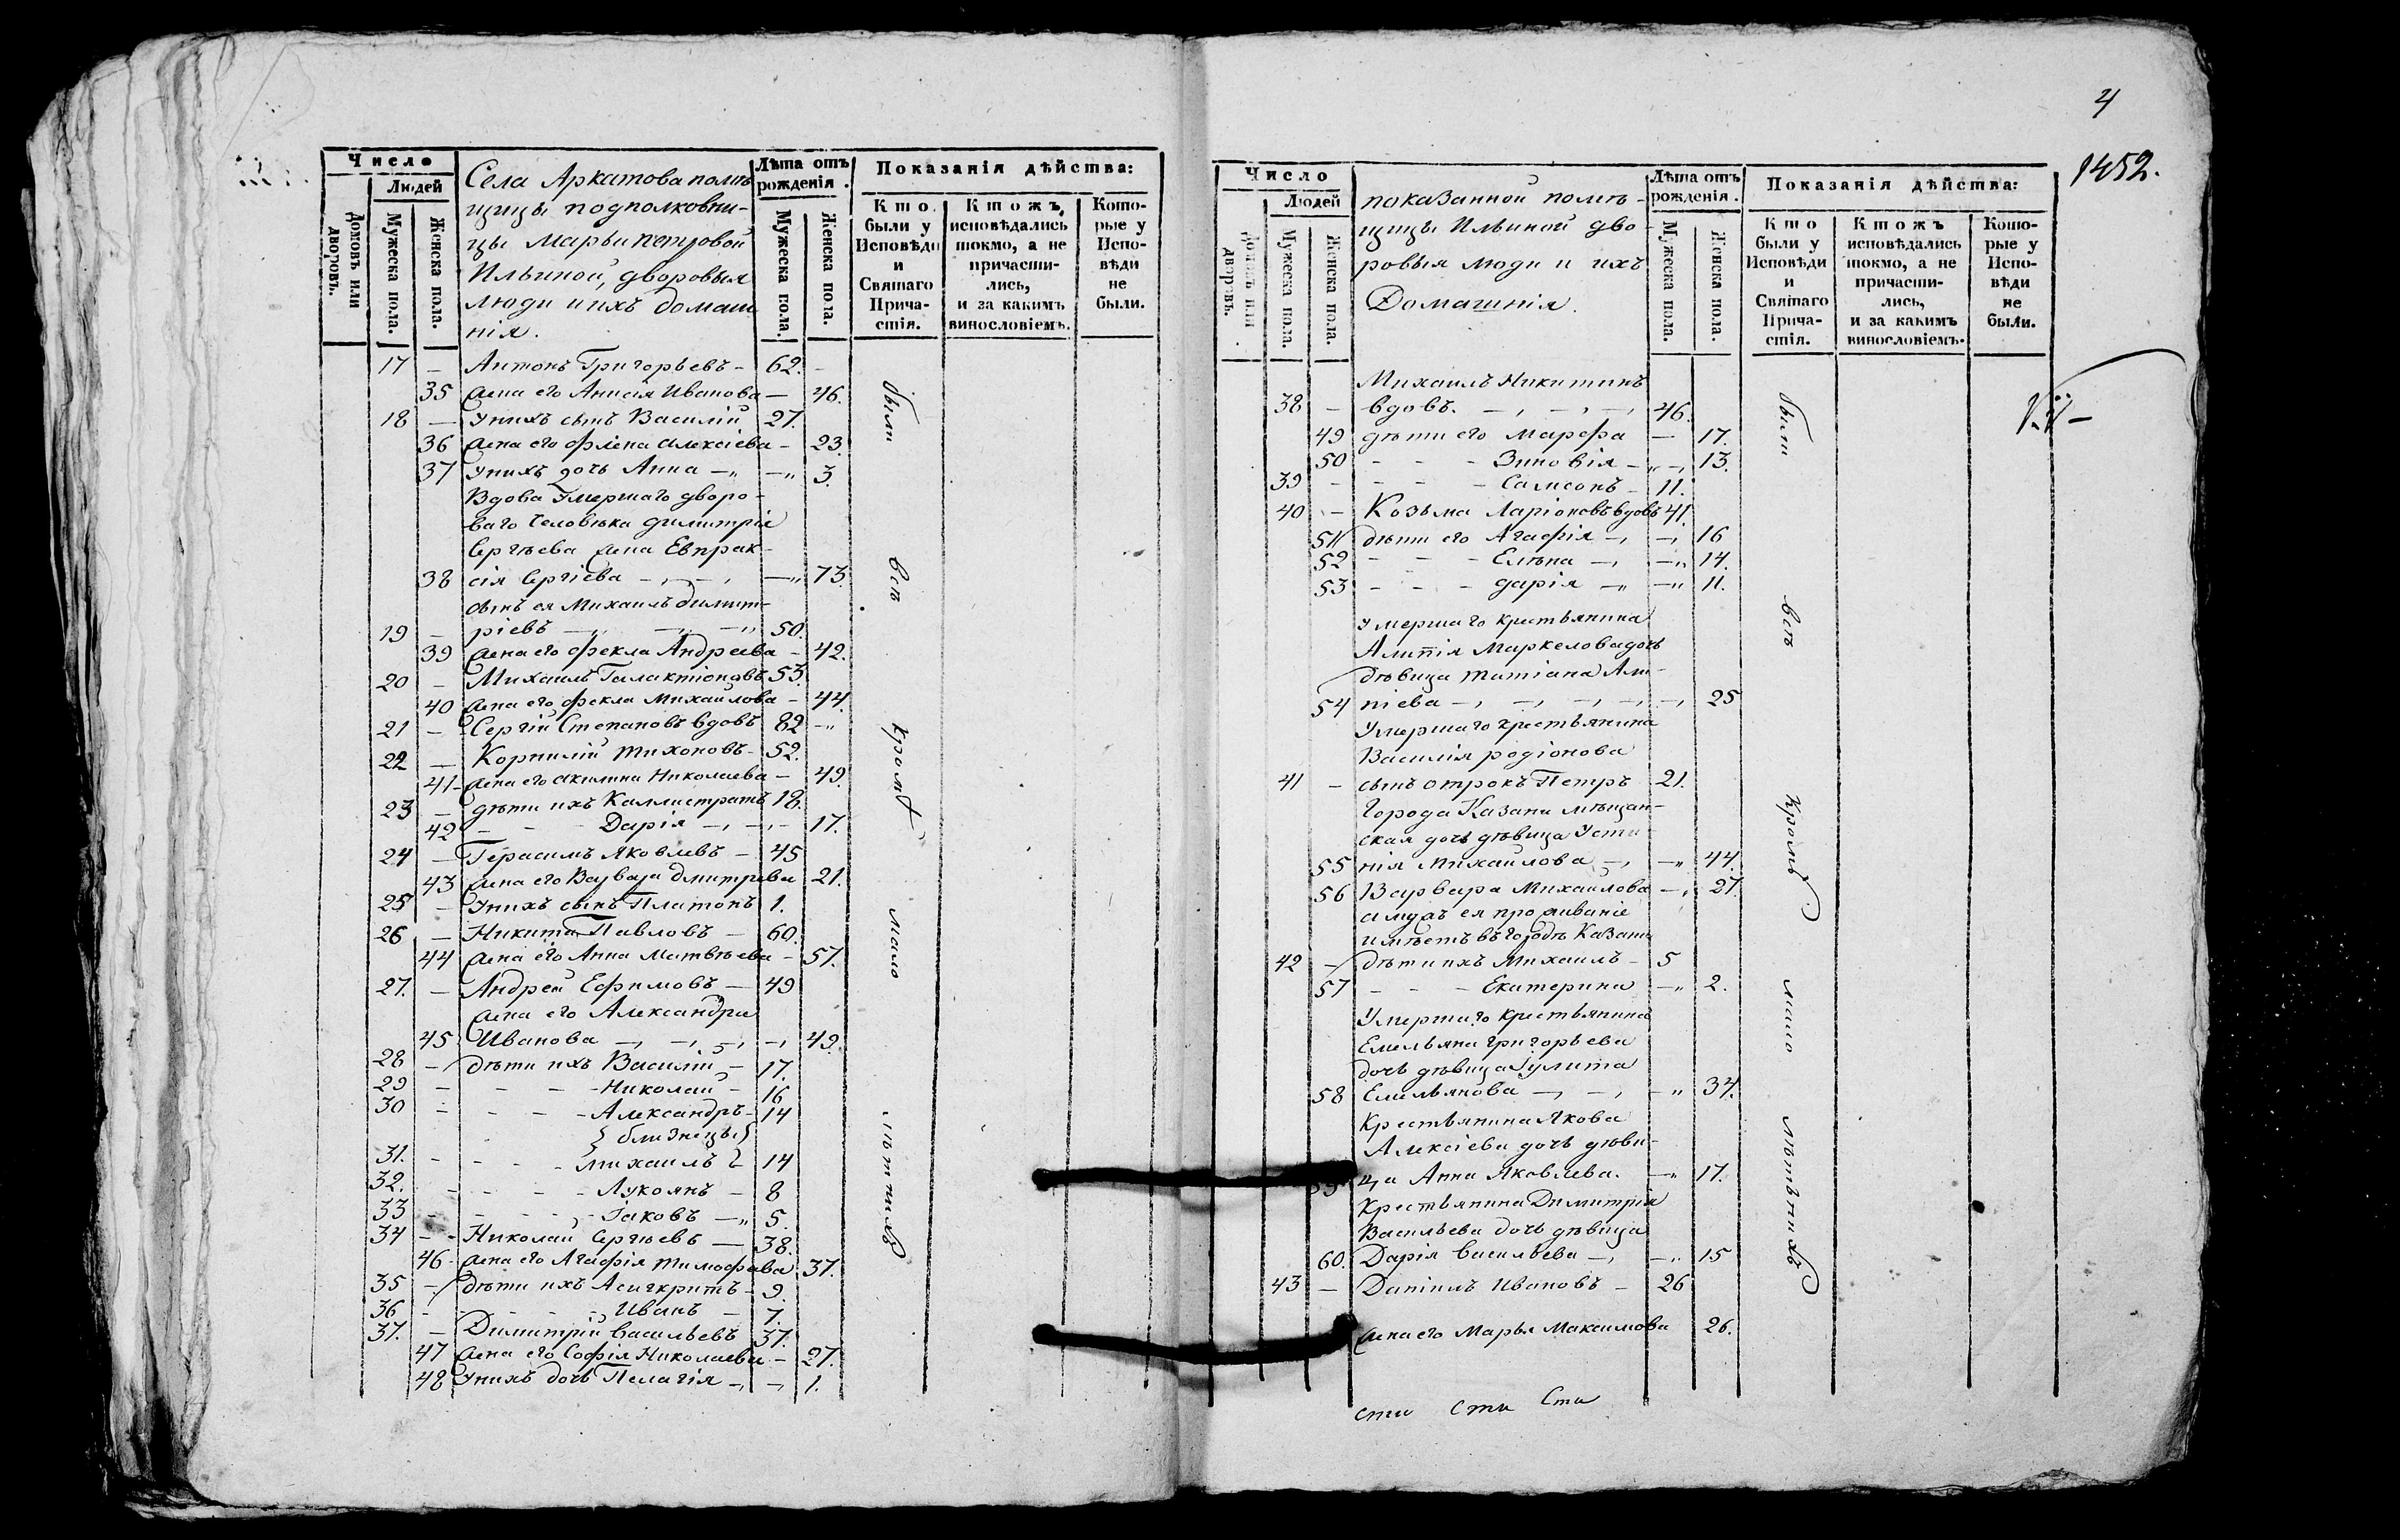 4
1452.
Число
Людей
Домовъ или дворовъ.
Мужеска пола.
Женска пола.
Села Аркатова помѣ-
щицы подполковни-
цы Марьи Петровой
Ильиной, дворовыя
люди и ихъ домаш
нія.
Лѣта отъ рожденія.
Мужеска пола.
Женска пола.
Показанія дѣйства:
Кто были у Исповѣди и Святаго Причастія.
Ктожъ исповѣдались токмо, а не причастились, и за какимъ винословіемъ.
Которые у Исповѣди не были.
17 – Антонъ Григорьевъ – 62. –
35 жена его Анисія Иванова – 46.
18 – У нихъ сынъ Василій 27.
36 жена его Фліена Алексіева – 23.
37 У нихъ дочь Анна – 3.
Вдова Умершаго дворо-
ваго человѣка Димитрія
Сергѣева жена Евпрак-
38 сія Сергіева – 73.
сынъ ея Михаилъ Димит-
19 – ріевъ – 50.
39 жена его Фекла Андреева – 42.
20 – Михаилъ Галактіоновъ 53.
40 жена его Фекла Михаилова – 44.
21 – Сергій Степановъ вдовъ 82 –
22 – Корнилій Тихоновъ – 52.
41 – жена его Акилина Николаева – 49.
23 – дѣти ихъ Каллистратъ 18.
42 – – Дарія – 17.
24 – Герасимъ Яковлевъ – 45
43 жена его Варвара Дмитріева 21.
25 – У нихъ сынъ Платонъ 1.
26 – Никита Павловъ – 60.
44 жена его Анна Матвѣева – 57.
27. – Андрей Ефимовъ – 49
жена его Александра
45 Иванова – 49.
28 – дѣти ихъ Василій – 17.
29 – – – Николай – 16
30 – – – Александръ – 14
{ близнецы }
31. – – – Михаилъ } 14
32. – – – Лукоянъ – 8
33 – – – Іаковъ – 5.
34 – – Николай Сергѣевъ – 38.
46 – жена его Агафія Тимофѣева 37.
35 – дѣти ихъ Асигкритъ – 9.
36 – – – Иванъ – 7.
37. – Димитрій Васильевъ 37.
47 жена его Софія Николаева – 27.
48 У нихъ дочь Пелагія – 1.
были всѣ кромѣ мало лѣтнихъ
Число
Людей
Домовъ или дворовъ.
Мужеска пола.
Женска пола.
показанной помѣ-
щицы Ильиной дво-
ровыя люди и ихъ
Домашнія.
Лѣта отъ рожденія.
Мужеска пола.
Женска пола.
Показанія дѣйства:
Кто были у Исповѣди и Святаго Причастія.
Ктожъ исповѣдались токмо, а не причастились, и за какимъ винословіемъ.
Которые у Исповѣди не были.
Михаилъ Никитинъ
38 – вдовъ. – 46.
49 дѣти его Марфа – 17.
50 – – Зиновія – 13.
39 – – – Самсонъ – 11.
40 – Козьма Ларіоновъ вдовъ 41.
51 дѣти его Агафія – 16
52 – – – Елѣна – 14.
53 – – – Дарія – 11.
Умершаго крестьянина
Алипія Маркелова дочь
дѣвица Татіана Али-
54 піева – 25
Умершаго крестьянина
Василія родіонова
41 – сынъ отрокъ Петръ 21.
города Казани мѣщан-
ская дочь дѣвица Усти-
55 нія Михаилова – 44.
56 Варвара Михаилова – 27
а мужъ ея проживаніе
имѣетъ въ городѣ Казани
42 – дѣти ихъ Михаилъ – 5
57 – – – Екатерина – 2.
Умершаго крестьянина
Емельяна григорьева
дочь дѣвица Іулита
58 Емельянова – 34.
Крестьянина Якова
Алексіева дочь дѣви-
59 ца Анна Яковлева. – 17.
Крестьянина Димитрія
Васильева дочь дѣвица
60. Дарія Васильева – 15
43 – Даніилъ Ивановъ – 26
жена его Марья Максимова 26.
были всѣ Кромѣ мало лѣтнихъ